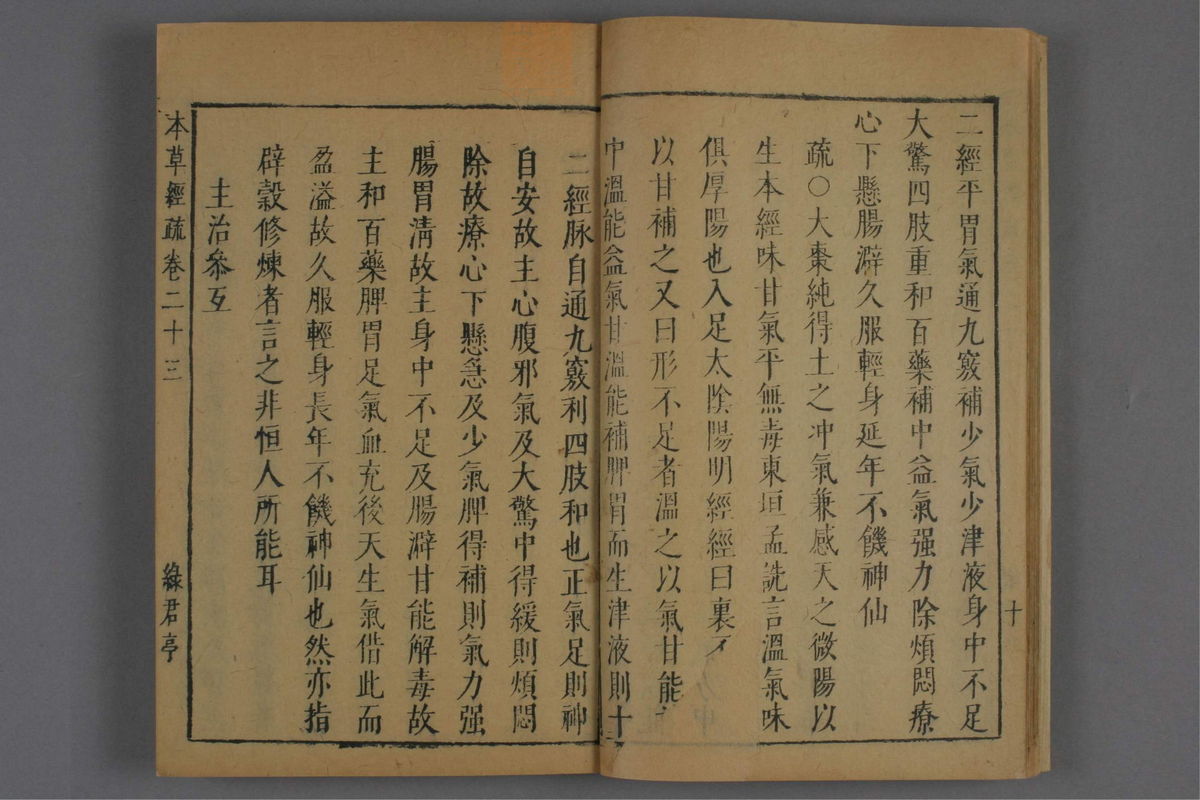 二經平胃氣通九竅補少氣少津液身中不足
大驚四肢重和百藥補中益氣强力除煩悶療
心下懸腸澼久服輕身延年不饑神仙
疏○大棗純得土之冲氣兼感天之微陽以
生本經味甘氣平無毒東垣孟詵言溫氣味
俱厚陽也入足太陰陽明經經曰裏不
以甘補之又曰形不足者溫之以氣甘能
中溫能益氣甘溫能補脾胃而生津液則十
二經脉自通九竅利四肢和也正氣足則神
自安故主心腹邪氣及大驚中得緩則煩悶
除故療心下懸急及少氣脾得補則氣力强
腸胃清故主身中不足及腸澼甘能解毒故
主和百藥脾胃足氣血充後天生氣借此而
盈溢故久服輕身長年不饑神仙也然亦指
辟穀修煉者言之非恒人所能耳
主治參互
本草經疏卷二十三
綠君亭
十